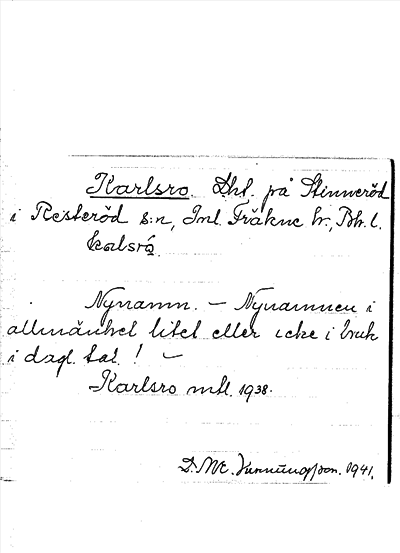 Karlsro. Lht. på Stinneröd
i Resteröd s:n, Inl. Fräkne hr, Bh. l.
kalsrọ́.
Nynamn. — Nynamnen i
allmänhet litet eller icke i bruk
i dagl. tal! —
Karlsro mtl. 1938.
D. 1941.